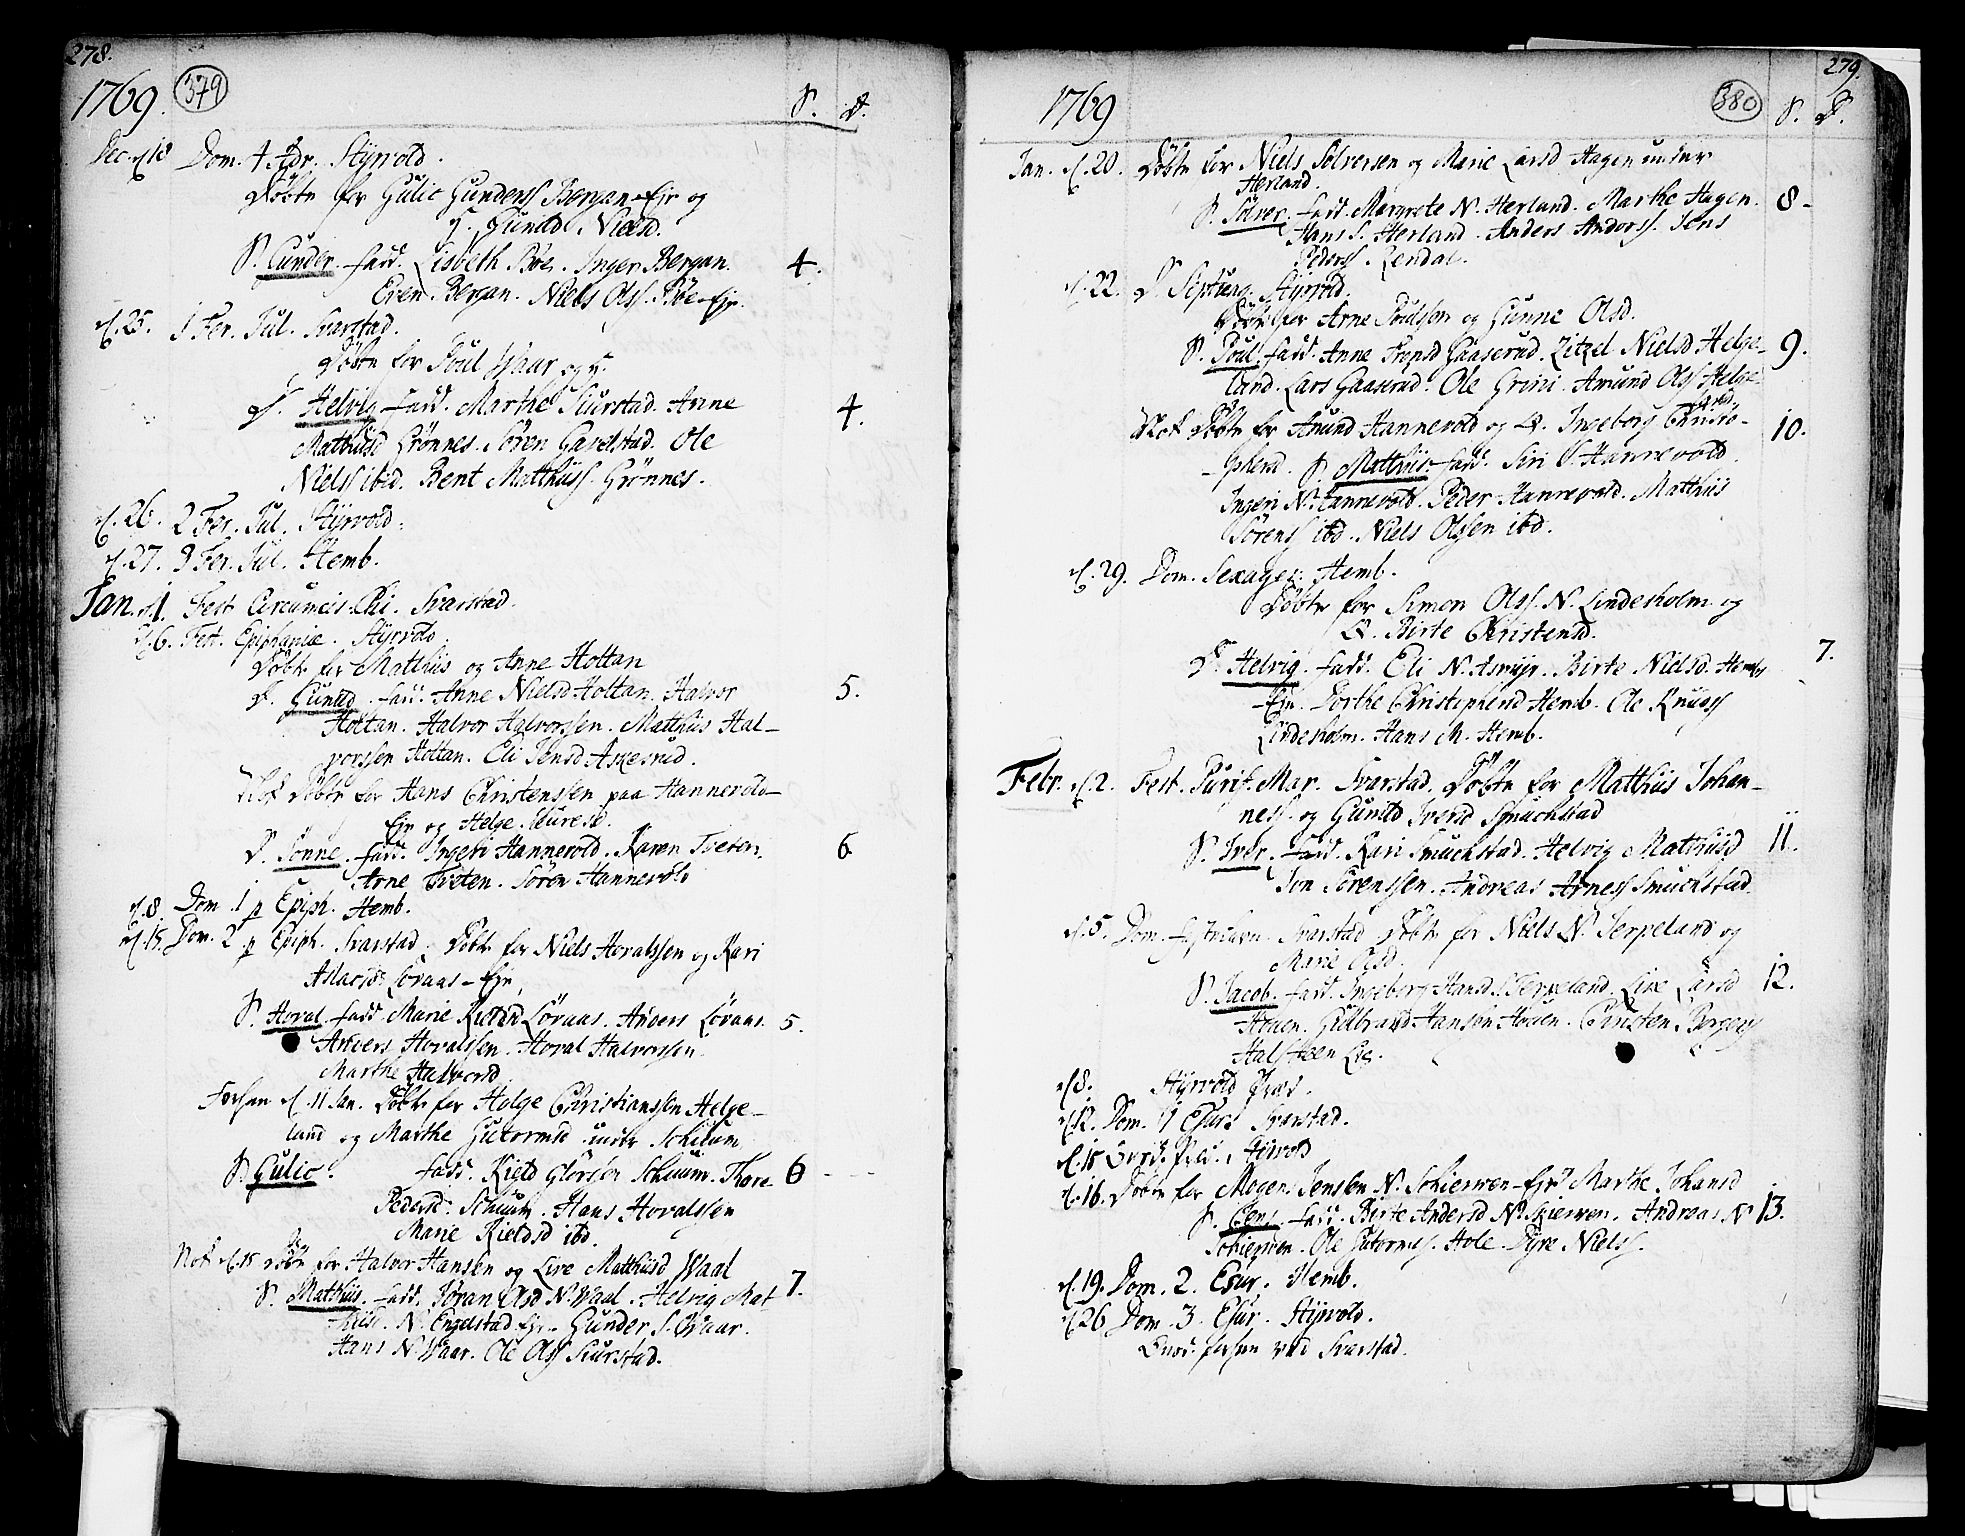 278.
1769. 379
S. D.
Dec. d. 18 Dom. 4 Adv. Styrvold.
Döbte for Gulic Gunderss Bergan-Ejr og
H. Gunild Nielsd.
S. Gunder. fadd. Lisbeth Böe. Inger Bergan. 4.
Even Bergan. Niels Olss. Böe-Ejr.
d. 25. 1 Fer. Jul. Svarstad.
Döbte for Poul Waar og H.
D. Helvig fadd. Marthe Siurstad. Anne 4.
Matthiisd Grönnes. Sören Gavelstad. Ole
Nielss ibid. Bent Matthiiss. Grönnes.
d. 26. 2 Fer. Jul. Styrvold.
d. 27. 3 Fer. Jul. Hemb.
Jan. d. 1. Fest Circumcis. Chi. Svarstad.
d. 6. Fest. Epiphaniæ. Styrvold.
Döbte for Matthiis og Anne Holtan
D. Gunild. fadd. Anne Nielsd Holtan. Halvor 5.
Holtan. Halvor Halvorssen. Matthiis Hal-
vorssen Holtan. Eli Jensd Askesrud.
Not Döbte for Hans Christenssen paa Hannevold-
Ejr og Helge Siuresd.
D. Sönne. fadd. Ingebr Hannevold. Karen Tveten. 6
Arne Tveten. Sören Hannevold
d. 8. Dom 1 p Epiph. Hemb.
d. 15. Dom. 2 p Epiph. Svarstad. Döbte for Niels Hovalssen og Kari
Aslacsd: Löraas-Ejr,
S. Hoval. fadd. Marie Kieldsd Löraas. Anders Löraas. 5.
Anders Hovalssen. Hoval Halvorssen.
Marthe Halvorsd
Forhen d. 11 Jan. Döbte for Helge Christianssen Helge-
land og Marthe Gutormsd under Schium
S. Gulic. fadd. Kield Glörsön Schium. Thore 6 - -
Pedersd. Schium. Hans Hovalssen
Marie Kieldsd ibd.
Not d. 15 Döbte for Halvor Hansen og Live Matthiisd Waal
S. Matthiis. fadd. Jöran Olsd N. Waal. Helvig Mat- 7.
thiisd. N. Engelstad Ejr. Gunder S. Waar.
Hans N. Waar. Ole Olss Siurstad.
279.
1769 380
S. D.
Jan. d. 20. Döbte for Niels Solversen og Marie Larsd Hagen under
Herland.
S. Sölver. fadd. Margrete N. Herland. Marthe Hagen. 8-
Hans S. Herland. Anders Anderss. Jens
Pederss. Rendal.
d. 22. D. Septuag. Styrvold.
Döbte for Arne Poulssen og Gunne Olsd.
S. Poul. fadd. Anne Gaaserud. Zitzel Nielsd Helge- 9.
land. Lars Gaaserud. Ole Grini. Amund Olss Helge-
land.
Not Döbte for Anund Hannevold og Q. Ingeborg Christo- 10.
-phersd. S. Matthiis. fadd. Siri S. Hannevold.
Ingeri N. Hannevold. Peder Hannevold. Matthiis
Sörenss ibd. Niels Olssen ibd.
d. 29. Dom. Sexages. Hemb.
Döbte for Simon Olss. N. Lindesholm og
Q. Birte Christensd.
D. Helvig. fadd. Eli N. Asmyr. Birte Nielsd. Hemb 7.
-Ejr. Dorthe Christophersd Hemb. Ole Knuss
Lindesholm. Hans M. Hemb.
Febr. d. 2. Fest. Purif. Mar. Svarstad. Döbte for Matthiis Johan-
ness. og Gunild Iversd Smuchstad
S. Iver. fadd. Kari Smuchstad. Helvig Matthiisd 11.
Jon Sörenssen. Andreas Arness Smuchstad.
d. 5. Dom. fastelavn. Svarstad Döbte for Niels N. Serpeland og
Marie Olsd.
S. Jacob. fadd. Ingeborg Hansd Serpeland. Live Larsd 12.
Hoven. Guldbrand Hansen Hoven. Christen Bergers
Halsteen Lie.
d. 8. Styrvold Præd.
d. 12. Dom. 1 Esur. Svarstad.
d. 15 Præd. Styrvold
d. 16. Döbte for Mogens Jensen N. Schierven-Ejr Marthe Johansd
S. Jens. fadd. Birte Andersd N. Skierven. Andreas N 13.
Schierven. Ole Gutormss. Hole. Syre Nielss.
d. 19. Dom. 2. Esur. Hemb.
d. 26 Dom. 3. Esur. Styrvold.
forhen ved Svarstad.